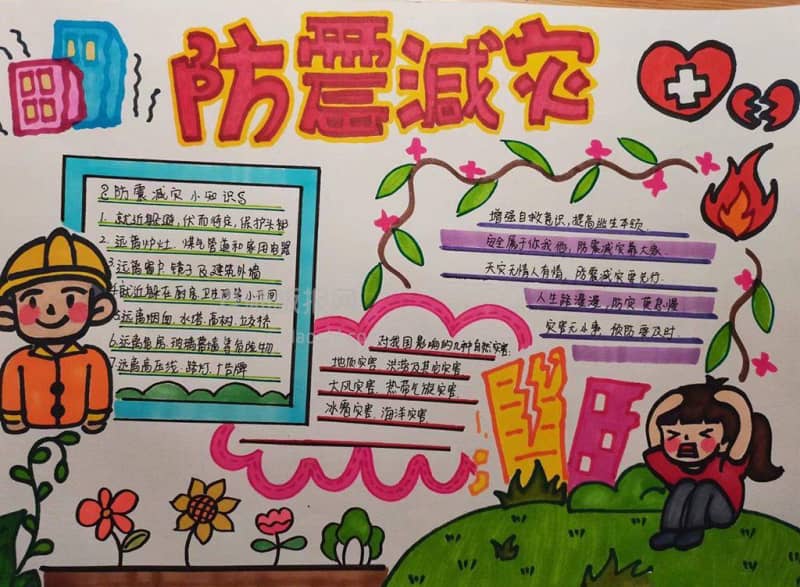 防震減灾
防震减灾小知识
1.就近躲避,伏而待定,保护头部
2.远离炉灶、煤气管道和家用电器
3.远离窗户、镜子及建筑外墙
4.就近躲在厨房、卫生间等小开间
5.远离烟囱、水塔、高树、立交桥
6.远离危房、玻璃幕墙等危险物
7.远离高压线、路灯、广告牌
增强自救意识,提高逃生本领
安全属于你我他,防震减灾靠大家
天灾无情人有情,防震减灾要先行
人生路漫漫,防灾莫怠慢
灾害无小事,预防要及时
对我国影响的几种自然灾害:
地质灾害、洪涝及其它灾害
大风灾害、热带气旋灾害
冰雹灾害、海洋灾害